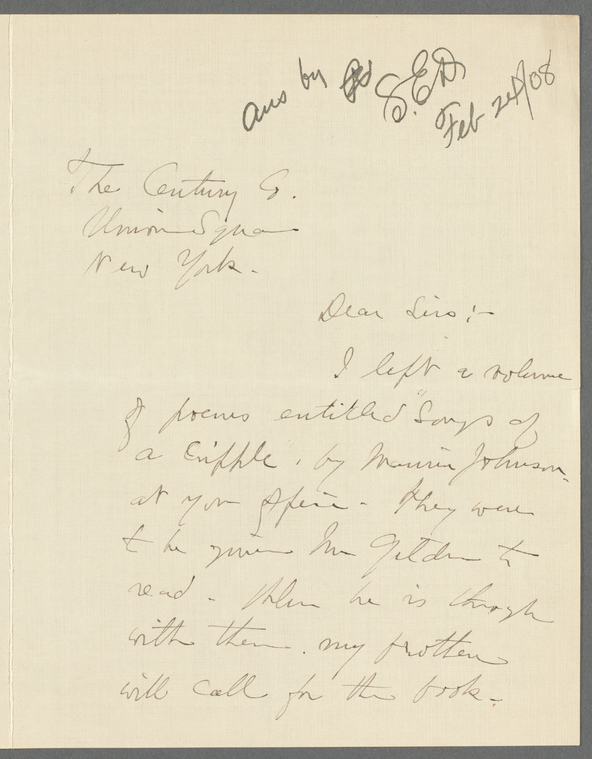 ans by
S.E.D.
Feb 24/08
The Century Co.
Union Square
New York.
Dear Sirs:-
I left a volume
of poems entitled "Songs of
a Cripple", by Johnson.
at your office - They were
to be given Mr Gilder to
read - When he is through
with them. my brother
will call for the book.